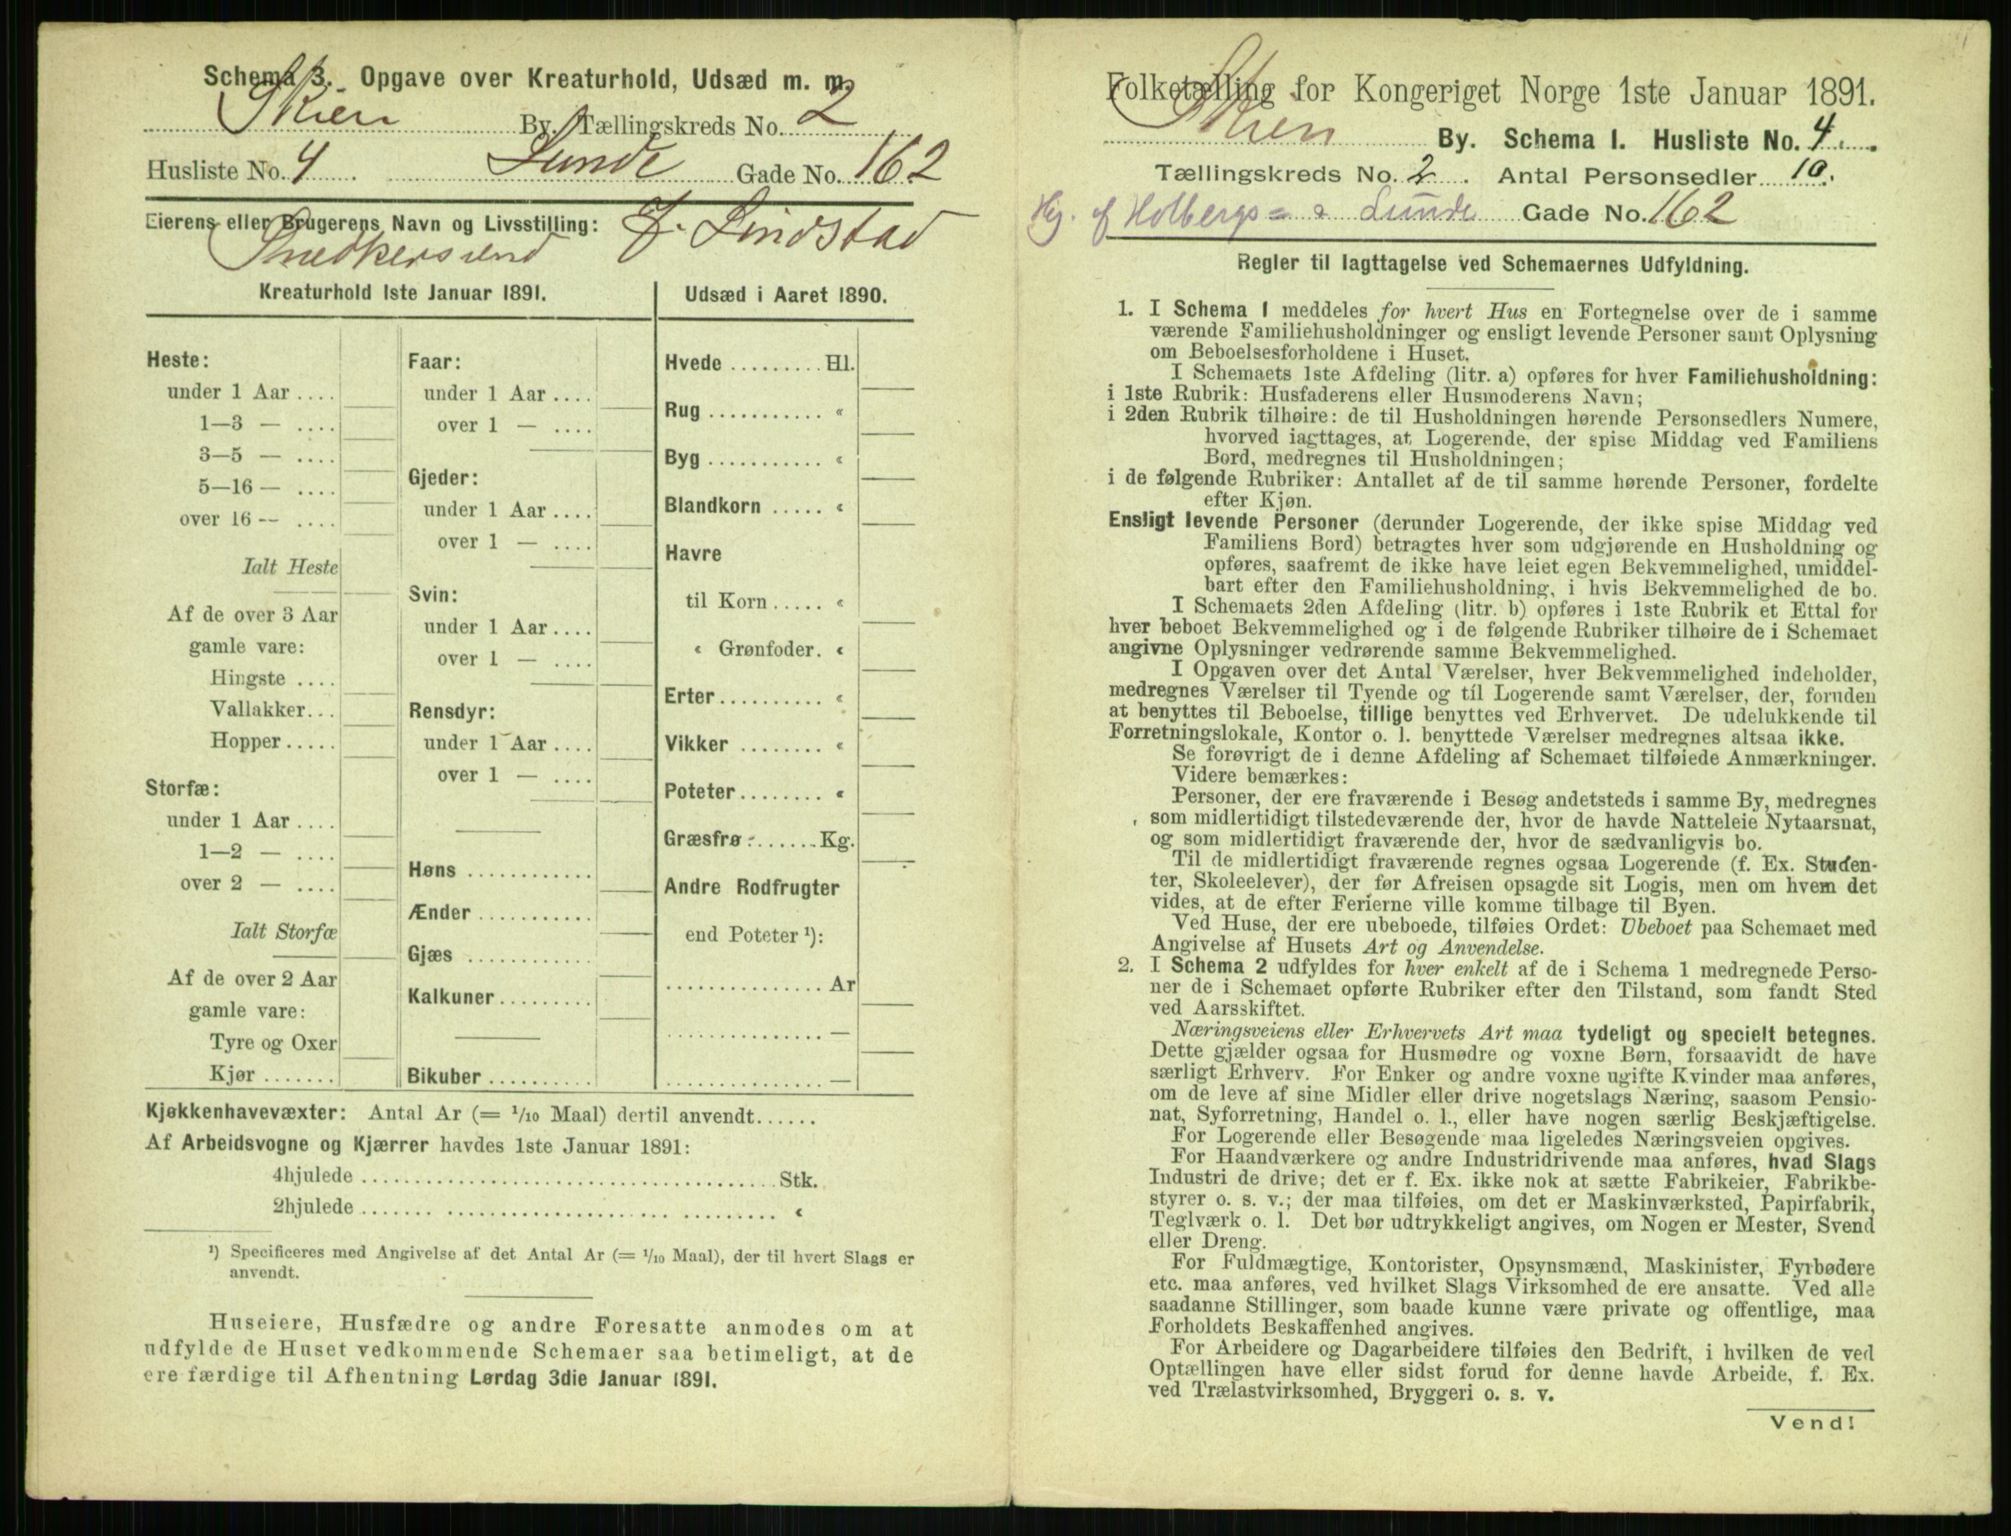 Schema 3. Opgave over Kreaturhold, Udsæd m. m.
Skien By. Tællingskreds No. 2
Husliste No. 4 Lunde Gade No. 162
Eierens eller Brugerens Navn og Livsstilling: J. Lindstad
Snedkersvend
Kreaturhold 1ste Januar 1891.
Heste:
under 1 Aar ....
1—3 — ....
3—5 — ....
5—16 — ....
over 16 — ....
Ialt Heste
Af de over 3 Aar
gamle vare:
Hingste ....
Vallakker...
Hopper.....
Storfæ:
under 1 Aar ....
1—2 — ....
over 2 — ....
Ialt Storfæ
Af de over 2 Aar
gamle vare:
Tyre og Oxer
Kjør .......
Faar:
under 1 Aar ....
over 1 — ....
Gjeder:
under 1 Aar ....
over 1 — ....
Svin:
under 1 Aar ....
over 1 — ....
Rensdyr:
under 1 Aar ....
over 1 — ....
Høns ............
Ænder...........
Gjæs ............
Kalkuner.........
Bikuber ..........
Udsæd i Aaret 1890.
Hvede ......... Hl.
Rug ........... «
Byg ........... «
Blandkorn ..... «
Havre
til Korn..... «
« Grønfoder. «
Erter.......... «
Vikker ........ «
Poteter........ «
Græsfrø....... Kg.
Andre Rodfrugter
end Poteter ¹):
............... Ar
............... —
............... —
Kjøkkenhavevæxter: Antal Ar (= 1/10 Maal) dertil anvendt......
Af Arbeidsvogne og Kjærrer havdes 1ste Januar 1891:
4hjulede ....................................... Stk.
2hjulede ....................................... «
¹) Specificeres med Angivelse af det Antal Ar (= 1/10 Maal), der til hvert Slags er
anvendt.
Huseiere, Husfædre og andre Foresatte anmodes om at
udfylde de Huset vedkommende Schemaer saa betimeligt, at de
ere færdige til Afhentning Lørdag 3die Januar 1891.
Folketælling for Kongeriget Norge 1ste Januar 1891.
Skien By. Schema I. Husliste No. 4.
Tællingskreds No. 2. Antal Personsedler 10.
Hj. af Holbergs= & Lunde Gade No. 162
Regler til Iagttagelse ved Schemaernes Udfyldning.
1. I Schema 1 meddeles for hvert Hus en Fortegnelse over de i samme
værende Familiehusholdninger og ensligt levende Personer samt Oplysning
om Beboelsesforholdene i Huset.
I Schemaets 1ste Afdeling (litr. a) opføres for hver Familiehusholdning:
i 1ste Rubrik: Husfaderens eller Husmoderens Navn;
i 2den Rubrik tilhøire: de til Husholdningen hørende Personsedlers Numere,
hvorved iagttages, at Logerende, der spise Middag ved Familiens
Bord, medregnes til Husholdningen;
i de følgende Rubriker: Antallet af de til samme hørende Personer, fordelte
efter Kjøn.
Ensligt levende Personer (derunder Logerende, der ikke spise Middag ved
Familiens Bord) betragtes hver som udgjørende en Husholdning og
opføres, saafremt de ikke have leiet egen Bekvemmelighed, umiddel-
bart efter den Familiehusholdning, i hvis Bekvemmelighed de bo.
I Schemaets 2den Afdeling (litr. b) opføres i 1ste Rubrik et Ettal for
hver beboet Bekvemmelighed og i de følgende Rubriker tilhøire de i Schemaet
angivne Oplysninger vedrørende samme Bekvemmelighed.
I Opgaven over det Antal Værelser, hver Bekvemmelighed indeholder,
medregnes Værelser til Tyende og til Logerende samt Værelser, der, foruden
at benyttes til Beboelse, tillige benyttes ved Erhvervet. De udelukkende til
Forretningslokale, Kontor o. l. benyttede Værelser medregnes altsaa ikke.
Se forøvrigt de i denne Afdeling af Schemaet tilføiede Anmærkninger.
Videre bemærkes:
Personer, der ere fraværende i Besøg andetsteds i samme By, medregnes
som midlertidigt tilstedeværende der, hvor de havde Natteleie Nytaarsnat,
og som midlertidigt fraværende der, hvor de sædvanligvis bo.
Til de midlertidigt fraværende regnes ogsaa Logerende (f. Ex. Studen-
ter, Skoleelever), der før Afreisen opsagde sit Logis, men om hvem det
vides, at de efter Ferierne ville komme tilbage til Byen.
Ved Huse, der ere ubeboede, tilføies Ordet: Ubeboet paa Schemaet med
Angivelse af Husets Art og Anvendelse.
2. I Schema 2 udfyldes for hver enkelt af de i Schema 1 medregnede Perso-
ner de i Schemaet opførte Rubriker efter den Tilstand, som fandt Sted
ved Aarsskiftet.
Næringsveiens eller Erhvervets Art maa tydeligt og specielt betegnes.
Dette gjælder ogsaa for Husmødre og voxne Børn, forsaavidt de have
særligt Erhverv. For Enker og andre voxne ugifte Kvinder maa anføres,
om de leve af sine Midler eller drive nogetslags Næring, saasom Pensio-
nat, Syforretning, Handel o. l., eller have nogen særlig Beskjæftigelse.
For Logerende eller Besøgende maa ligeledes Næringsveien opgives.
For Haandværkere og andre Industridrivende maa anføres, hvad Slags
Industri de drive; det er f. Ex. ikke nok at sætte Fabrikeier, Fabrikbe-
styrer o. s. v.; der maa tilføies, om det er Maskinværksted, Papirfabrik,
Teglværk o. l. Det bør udtrykkeligt angives, om Nogen er Mester, Svend
eller Dreng.
For Fuldmægtige, Kontorister, Opsynsmænd, Maskinister, Fyrbødere
etc. maa anføres, ved hvilket Slags Virksomhed de ere ansatte. Ved alle
saadanne Stillinger, som baade kunne være private og offentlige, maa
Forholdets Beskaffenhed angives.
For Arbeidere og Dagarbeidere tilføies den Bedrift, i hvilken de ved
Optællingen have eller sidst forud for denne havde Arbeide, f. Ex.
ved Trælastvirksomhed, Bryggeri o. s. v.
Vend!